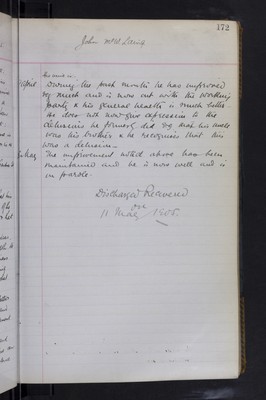 172
John McW.
April During the past month he has improved
very much and is now out with the working
party & his general health is much better.
He does not now give expression to the
delusions he formerly did eg that his uncle
was his brother & he recognises that this
was a delusion.
May The improvement noted above has been
maintained and he is now well and is
on parole.
Discharged Recovered
on
11 May 1905.